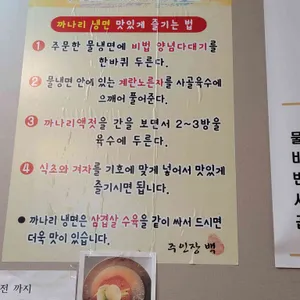 까나리 냉면 맛있게 즐기는 법
1 주문한 물냉면에 비법 양념다대기를
한바퀴 두른다.
2 물냉면 안에 있는 계란노른자를 사골육수에
으깨어 풀어준다.
3 까나리액젓을 간을 보면서 2~3방울
육수에 두른다.
4 식초와 겨자를 기호에 맞게 넣어서 맛있게
즐기시면 됩니다.
● 까나리 냉면은 삼겹살 수육을 같이 싸서 드시면
더욱 맛이 있습니다.
주인장 백
전 까지
물
비